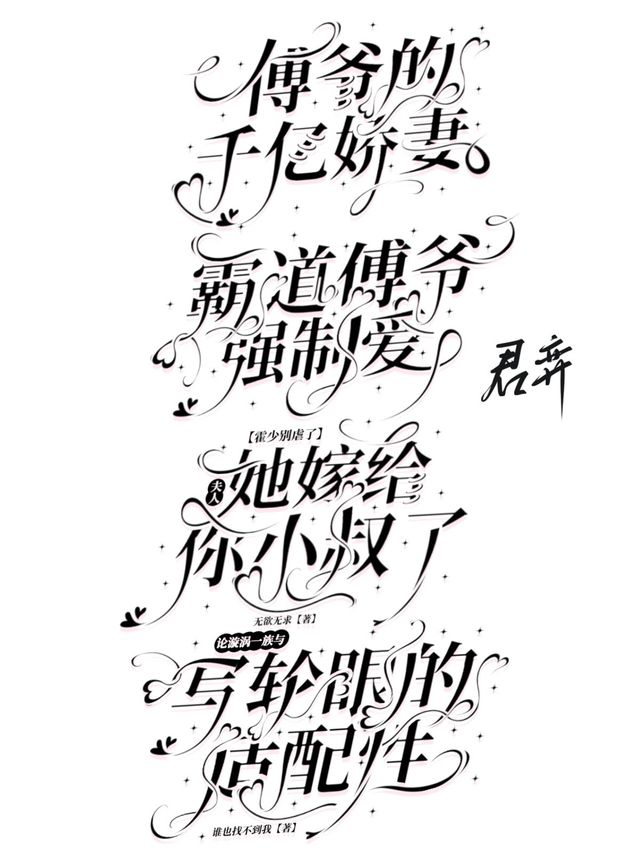 傅爷的
千亿娇妻
霸道傅爷
强制爱
君弈
【霍少别虐了】
夫人
她嫁给
你小叔了
无欲无求【著】
论漩涡一族与
写轮眼的
适配性
谁也找不到我【著】